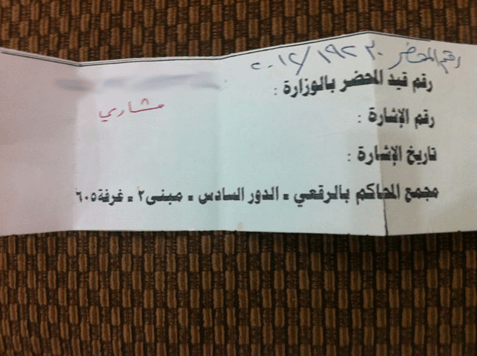 رقم المحضر ١٩٢٣٠/٢٠١٢
رقم قيد المحضر بالوزارة :
رقم الإشارة :
مشاري
تاريخ الإشارة :
مجمع المحاكم بالرقعي - الدور السادس - مبنى ٢ - غرفة ٦٠٥